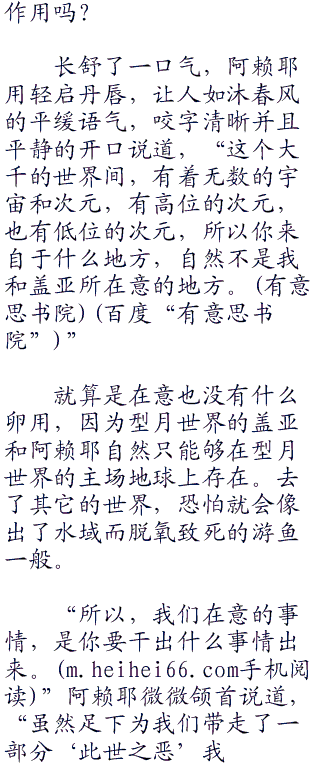 作用吗？
长舒了一口气，阿赖耶
用轻启丹唇，让人如沐春风
的平缓语气，咬字清晰并且
平静的开口说道，“这个大
千的世界间，有着无数的宇
宙和次元，有高位的次元，
也有低位的次元，所以你来
自于什么地方，自然不是我
和盖亚所在意的地方。(有意
思书院)(百度“有意思书
院”)”
就算是在意也没有什么
卵用，因为型月世界的盖亚
和阿赖耶自然只能够在型月
世界的主场地球上存在。去
了其它的世界，恐怕就会像
出了水域而脱氧致死的游鱼
一般。
“所以，我们在意的事
情，是你要干出什么事情出
来。(m.heihei66.com手机阅
读)”阿赖耶微微颌首说道，
“虽然足下为我们带走了一
部分‘此世之恶’我